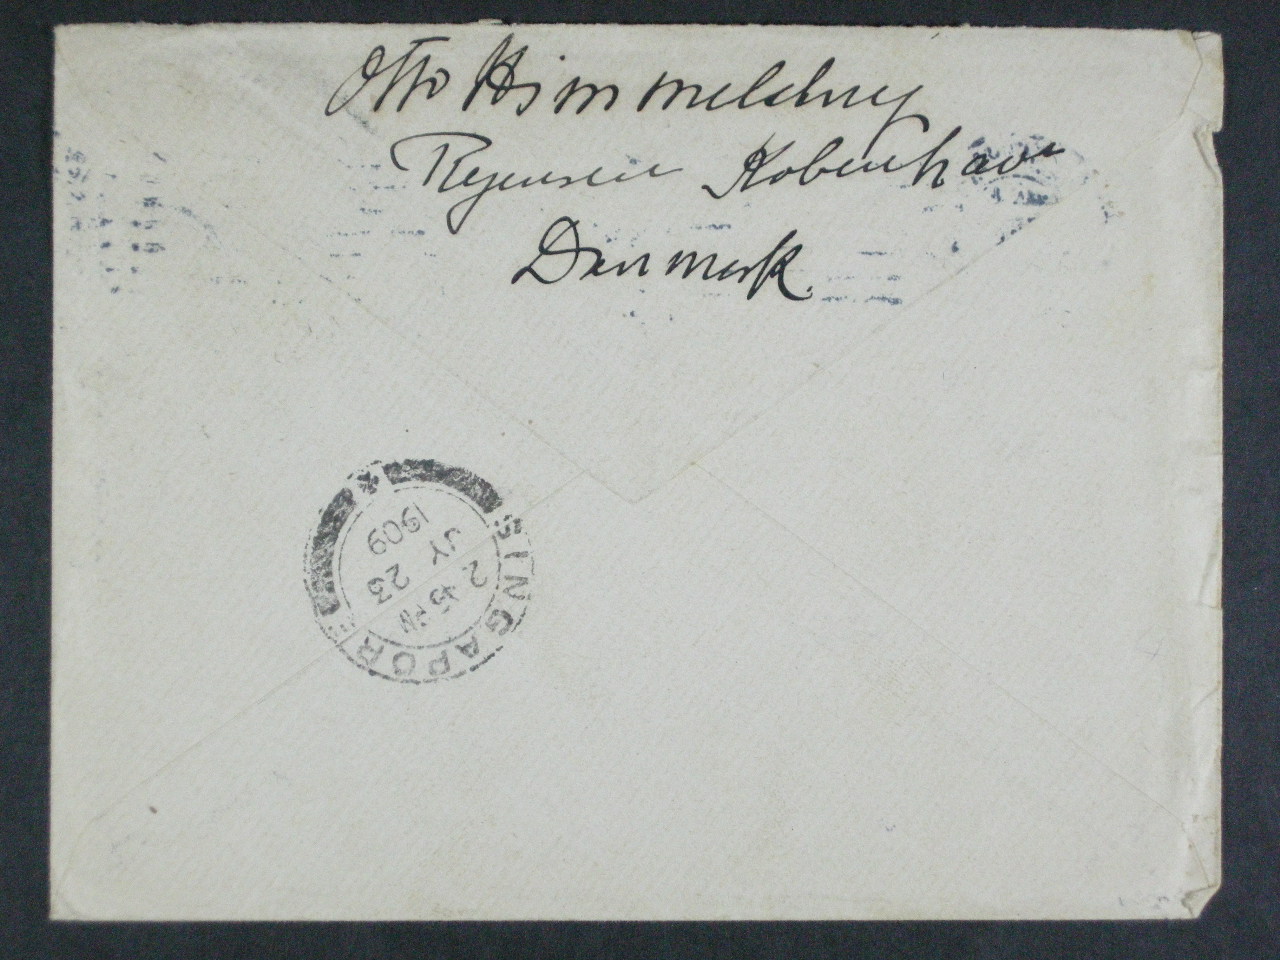 Otto Himmelstrup
Regensen Kobenhavn
Danmark.
SINGAPORE
2.45 PM
JY 23
1909